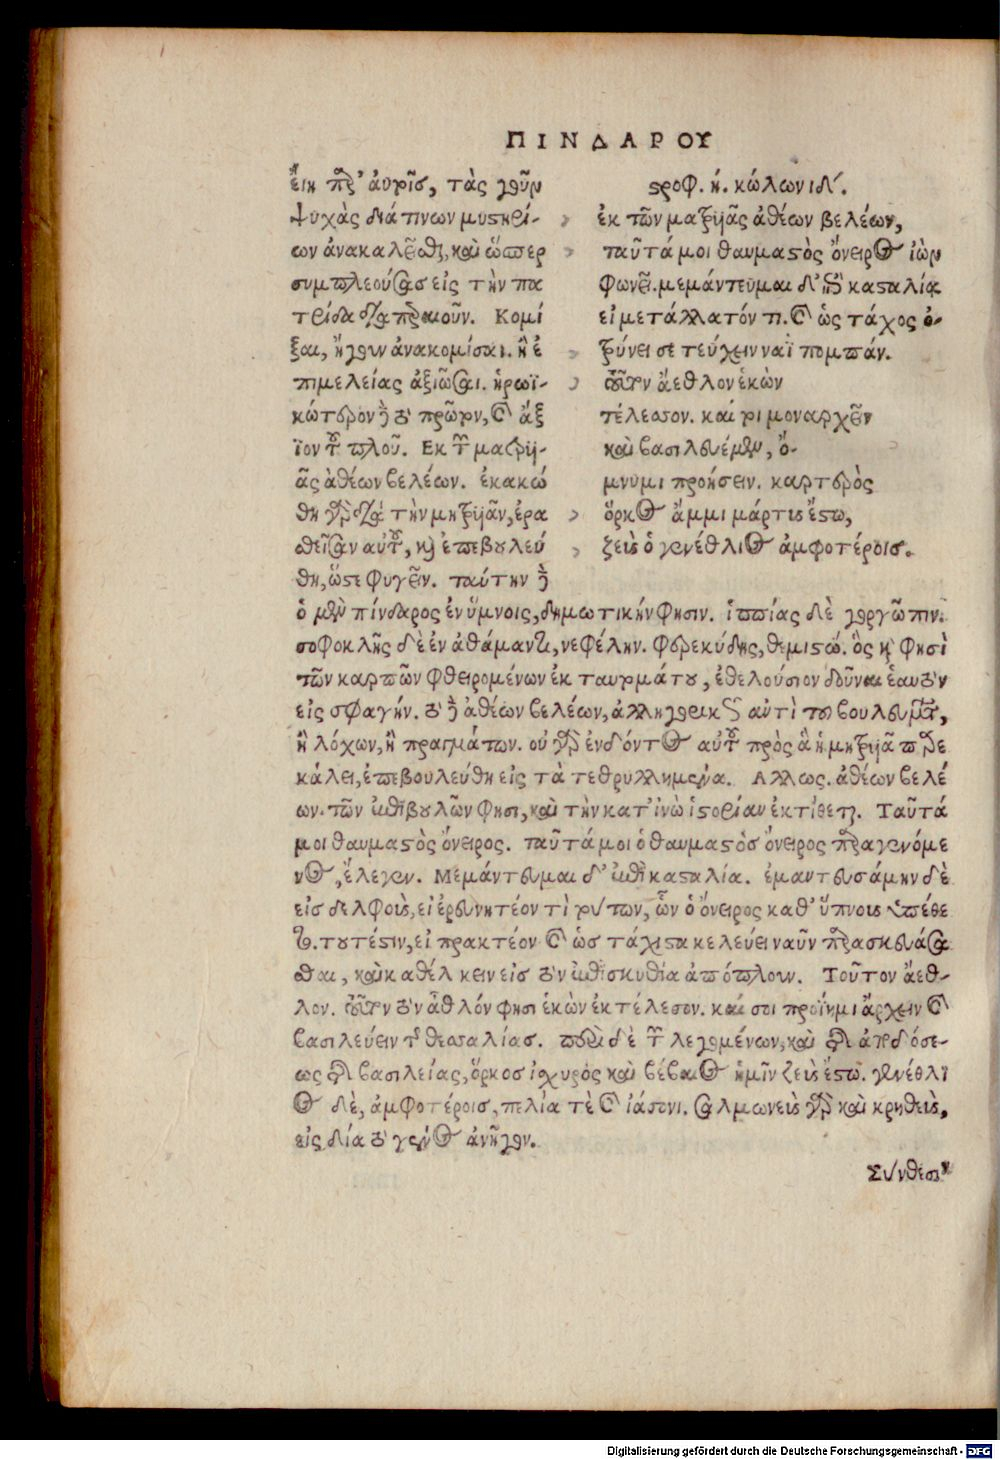 ΠΙΝΔΑΡΟΥ
ἔιη πρὸς ἀυτοῖς, τὰς γοῦν
ψυχὰς διά τινων μυστηρί-
ων ἀνακαλεῖσθαι, καὶ ὥσπερ
συμπλεούσας εἰς τὴν πα
τρίδα διαπεραιοῦν. Κομί
ξαι, ἤγουν ἀνακομίσαι. ἢ ἐ
πιμελείας ἀξιῶσαι. ἡρωϊ-
κώτερον δὲ τὸ πρῶτον, καὶ ἄξ
ϊον τοῦ πλοῦ. Εκ τῶν ματρυι-
ᾶς ἀθέων βελέων. ἐκακώ
θη γὰρ διὰ τὴν μητρυιὰν, ἐρα
σθεῖσαν αὐτοῦ, καὶ ἐπεβουλεύ
θη, ὥστε φυγεῖν. ταύτην δὲ
στροφ. η. κώλων ιδ.
ἐκ τῶν ματρυιᾶς ἀθέων βελέων,
ταῦτά μοι θαυμαστὸς ὄνειρος ἰὼν
φωνεῖ. μεμάντευμαι δ' ἐπὶ κασταλίᾳ
εἰ μετάλλατόν τι. καὶ ὡς τάχος ὀ-
τρύνει με τεύχειν ναῒ πομπάν.
τοῦτον ἄεθλον ἑκὼν
τέλεσον. καί τοι μοναρχεῖν
καὶ βασιλευέμεν, ὄ-
μνυμι προήσειν. καρτερὸς
ὅρκος ἄμμι μάρτυς ἔστω,
ζεὺς ὁ γενέθλιος ἀμφοτέροις.
ὁ μὲν πίνδαρος ἐν ὕμνοις, δημωτικήν φησιν. ἱππίας δὲ γοργῶπιν.
σοφοκλῆς δὲ ἐν ἀθάμαντι, νεφέλην. φερεκύδης, θεμιστώ. ὃς καὶ φησὶ
τῶν καρπῶν φθειρομένων ἐκ ταυτομάτου, ἐθελούσιον δοῦναι ἑαυτὸν
εἰς σφαγήν. τὸ δὲ ἀθέων βελέων, ἀλληγορικῶς αντὶ του βουλευμάτων,
ἢ λόχων, ἢ πραγμάτων. οὐ γὰρ ἐνδόντος αὐτοῦ πρὸς ἃ ἡ μητρυιὰ παρε
κάλει, ἐπεβουλεύθη εἰς τὰ τεθρυλλημένα. Αλλως. ἀθέων βελέ
ων. τῶν ἐπιβουλῶν φησι, καὶ τὴν κατ' ἰνὼ ἱστορίαν ἐκτίθεται. Ταῦτά
μοι θαυμαστὸς ὄνειρος. ταῦτά μοι ὁ θαυμαστὸς ὄνειρος παραγενόμε
νος, ἔλεγεν. Μεμάντευμαι δ' ἐπὶ κασταλία. ἐμαντευσάμην δὲ
εἰς δελφοὺς, εἰ ἐρευνητέον τὶ τούτων, ὧν ὁ ὄνειρος καθ' ὕπνους ὑπέθε
το. τουτέστιν, εἰ πρακτέον καὶ ὡς τάχιστα κελεύει ναῦν παρασκευάσα
σθαι, καὶ καθέλκειν εἰς τὸν ἐπὶ σκυθία ἀπόπλουν. Τοῦτον ἄεθ-
λον. τοῦτον τὸν ἆθλόν φησι ἑκὼν ἐκτέλεσον. καί σοι προΐημι ἄρχειν καὶ
βασιλεύειν τῆς θεσσαλίας. περὶ δὲ τῶν λεγομένων, καὶ τῆς ἀποδόσε-
ως τῆς βασιλείας, ὅρκος ἰσχυρὸς καὶ βέβαιος ἡμῖν ζεὺς ἔστω. γενέθλι
ος δὲ, ἀμφοτέροις, πελία τὲ καὶ ἰάσονι. σαλμωνεὺς γὰρ καὶ κρηθεὺς,
εἰς δία τὸ γένος ἀνῆγον.
Σύνθεσιν
Digitalisierung gefördert durch die Deutsche Forschungsgemeinschaft - DFG